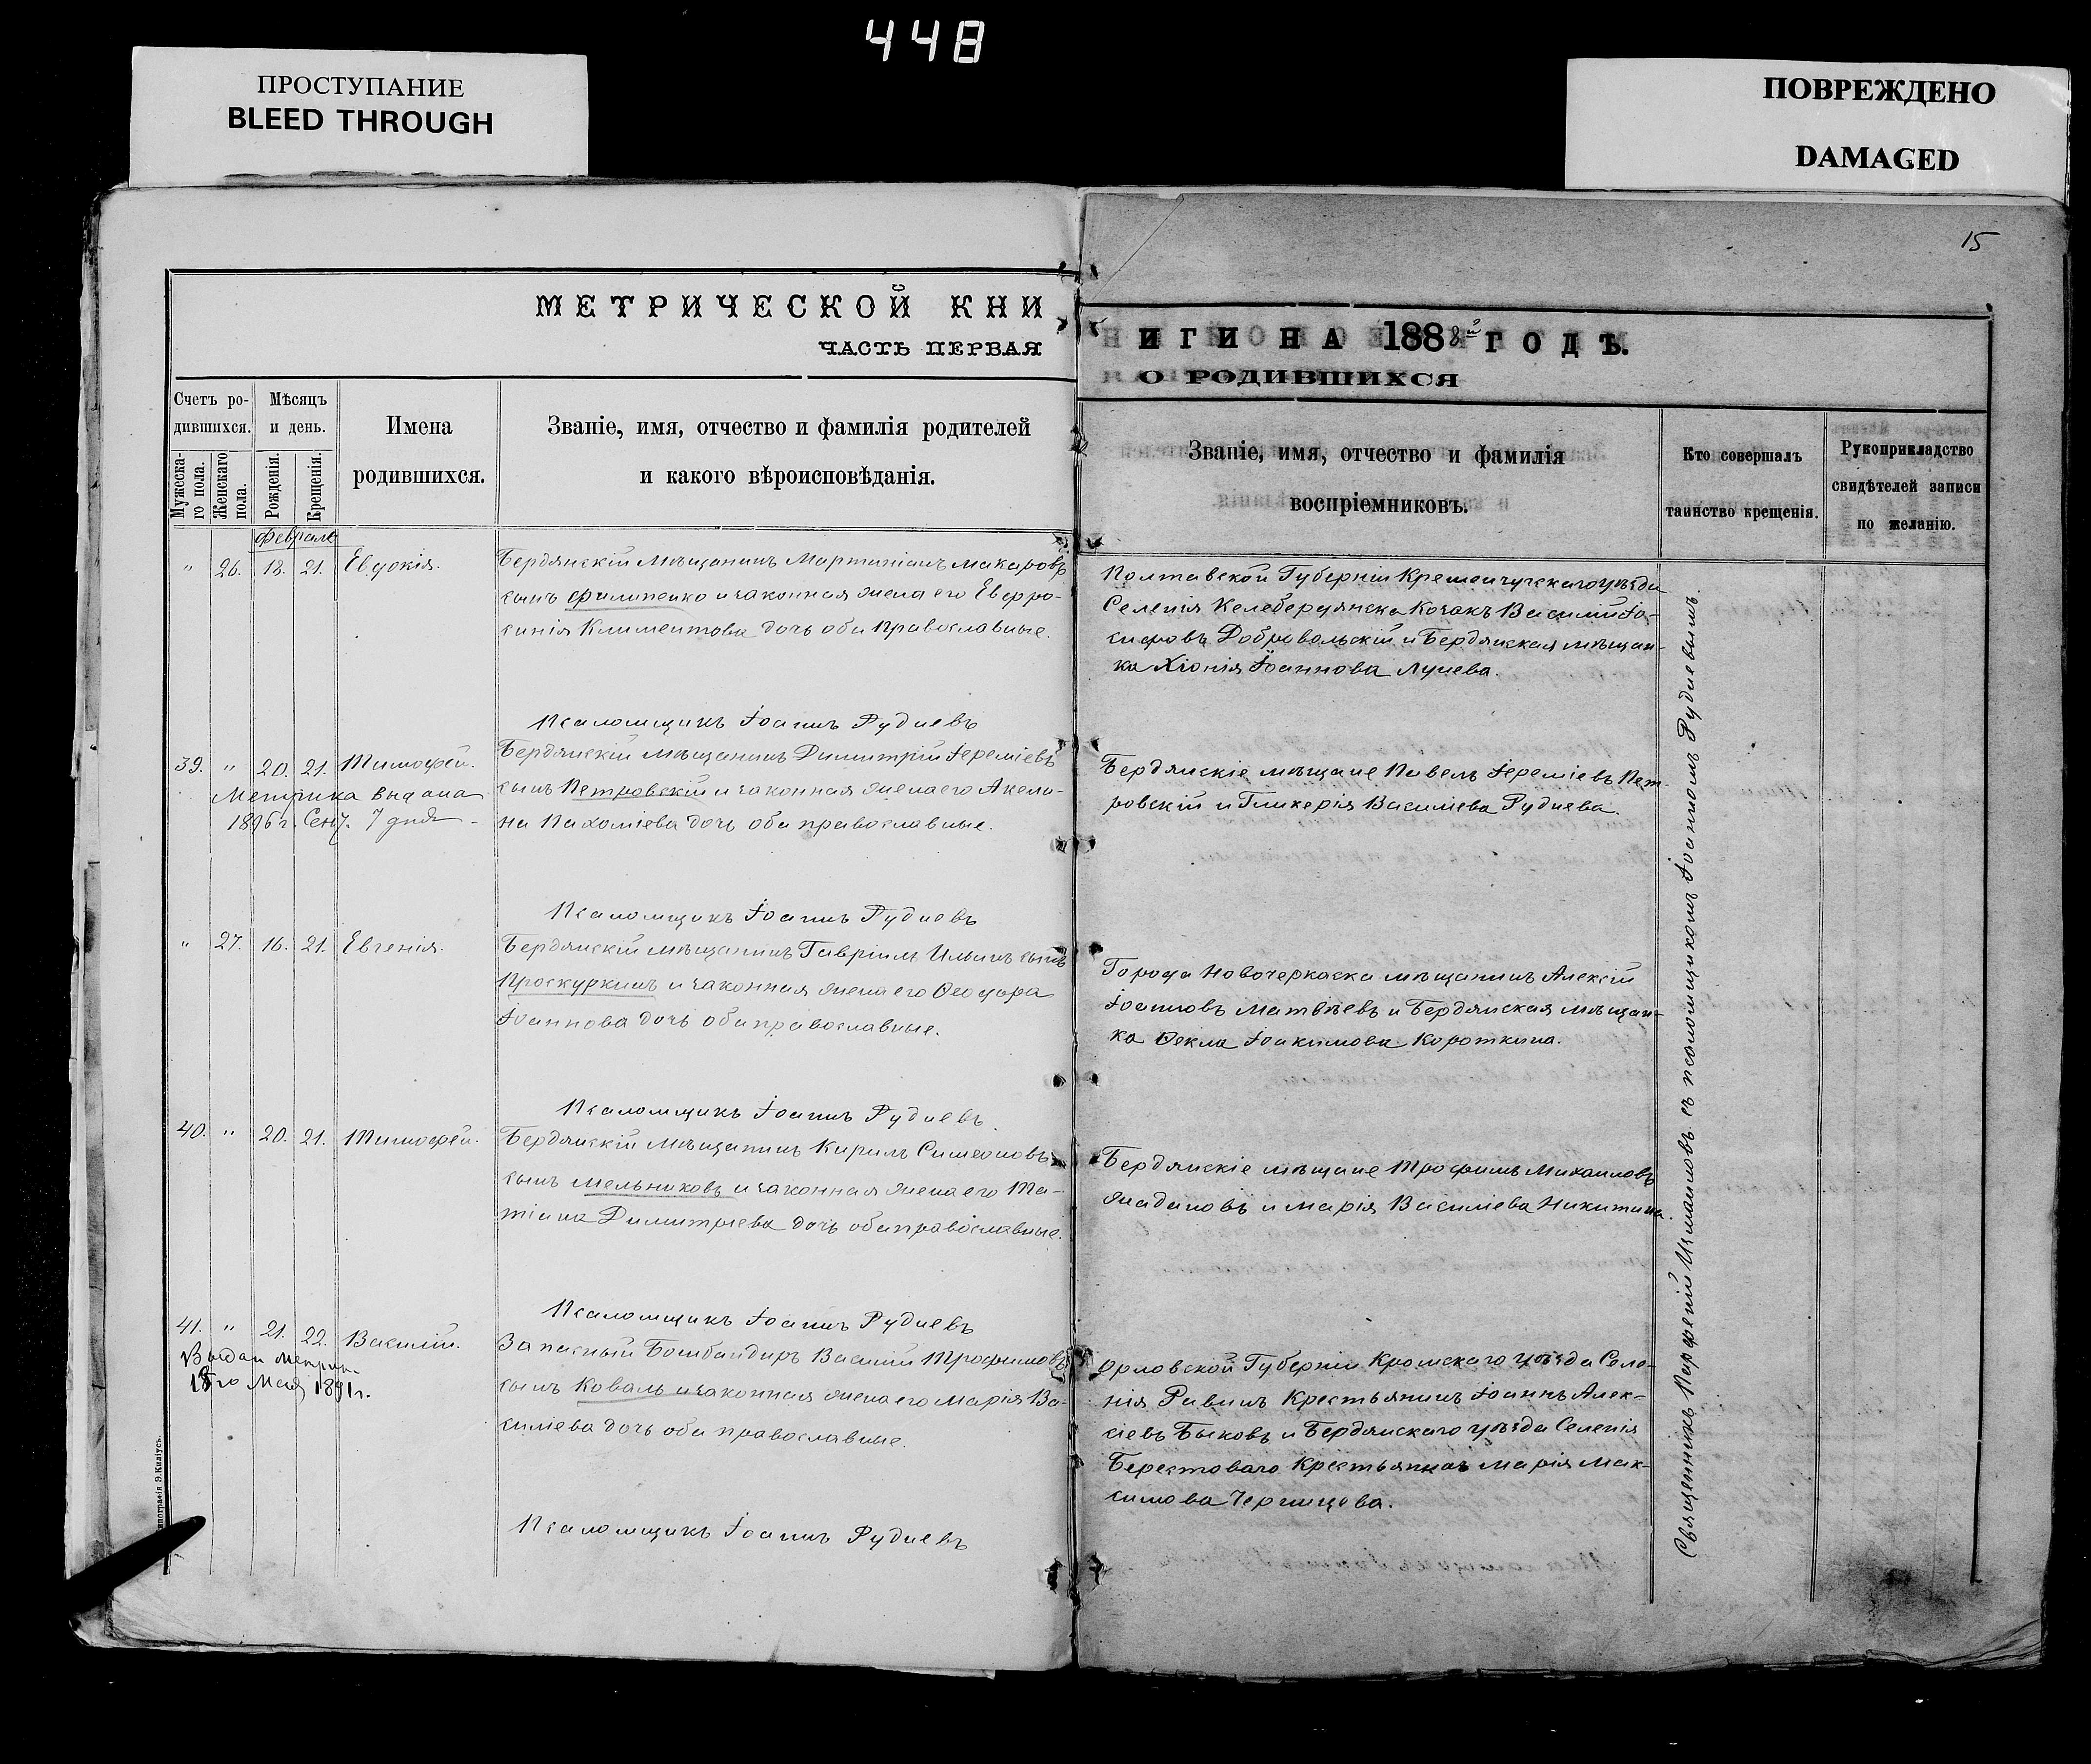 448
ПРОСТУПАНИЕ
BLEED THROUGH
ПОВРЕЖДЕНО
DAMAGED
15
МЕТРИЧЕСКОЙ КНИ
ЧАСТЬ ПЕРВАЯ
ИГИ НА 1888й ГОДЪ.
О РОДИВШИХСЯ
Счетъ ро-
дившихся.
Мужеска-
го пола.
Женскаго
пола.
Мѣсяцъ
и день.
Рожденія.
Крещенія.
Имена
родившихся.
Званіе, имя, отчество и фамилія родителей
и какого вѣроисповѣданія.
Званіе, имя, отчество и фамилія
воспріемниковъ.
Кто совершалъ
таинство крещенія.
Рукоприкладство
свидѣтелей записи
по желанію.
Февраль
" 26. 18. 21. Евдокія.
Бердянскій мѣщанинъ Мартиніанъ Макаровъ
сынъ Филипенко и законная жена его Евфро-
синія Климентова дочь оба православные.
Полтавской Губерніи Кременчугскаго уѣзда
Селенія Келебердянска Козакъ Василій Іо-
сифовъ Добровольскій и Бердянская мѣщан-
ка Хіонія Іоаннова Лунева.
Псаломщикъ Іоаннъ Рудневъ
39. " 20. 21. Тимофей.
Метрика выдана
1896 г. Сент. 7 дня
Бердянскій мѣщанинъ Димитрій Іереміевъ
сынъ Петровскій и законная жена его Акели-
на Пахоміева дочь оба православные.
Бердянскіе мѣщане Павелъ Іереміевъ Пет-
ровскій и Гликерія Василіева Руднева.
Псаломщикъ Іоаннъ Рудневъ
" 27. 16. 21. Евгенія.
Бердянскій мѣщанинъ Гавріилъ Ильинъ сынъ
Проскуркинъ и законная жена его Ѳеодора
Іоаннова дочь оба православные.
Города Новочеркаска мѣщанинъ Алексій
Іоанновъ Матвѣевъ и Бердянская мѣщан-
ка Ѳекла Іоакимова Короткина.
Псаломщикъ Іоаннъ Рудневъ.
40. " 20. 21. Тимофей.
Бердянскій мѣщанинъ Кирилъ Симеоновъ
сынъ Мельниковъ и законная жена его Та-
тіана Димитріева дочь оба православные.
Бердянскіе мѣщане Трофимъ Михаиловъ
Жадановъ и Марія Василіева Никитина.
Псаломщикъ Іоаннъ Рудневъ
41. " 21. 22. Василій.
Выдан метрик.
18го Мая 1891 г.
Запасный Бомбандиръ Василій Трофимовъ
сынъ Коваль и законная жена его Марія Ва-
силіева дочь оба православные.
Орловской Губерніи Кромскаго уѣзда Селе-
нія Ривинъ Крестьянинъ Іоаннъ Алек-
сіевъ Быковъ и Бердянскаго уѣзда Селенія
Берестоваго Крестьянка Марія Мак-
симова Черницева.
Псаломщикъ Іоаннъ Рудневъ
Священникъ Парфеній съ псаломщикомъ Іоанномъ Рудневымъ.
типографія Э.Киліусъ.